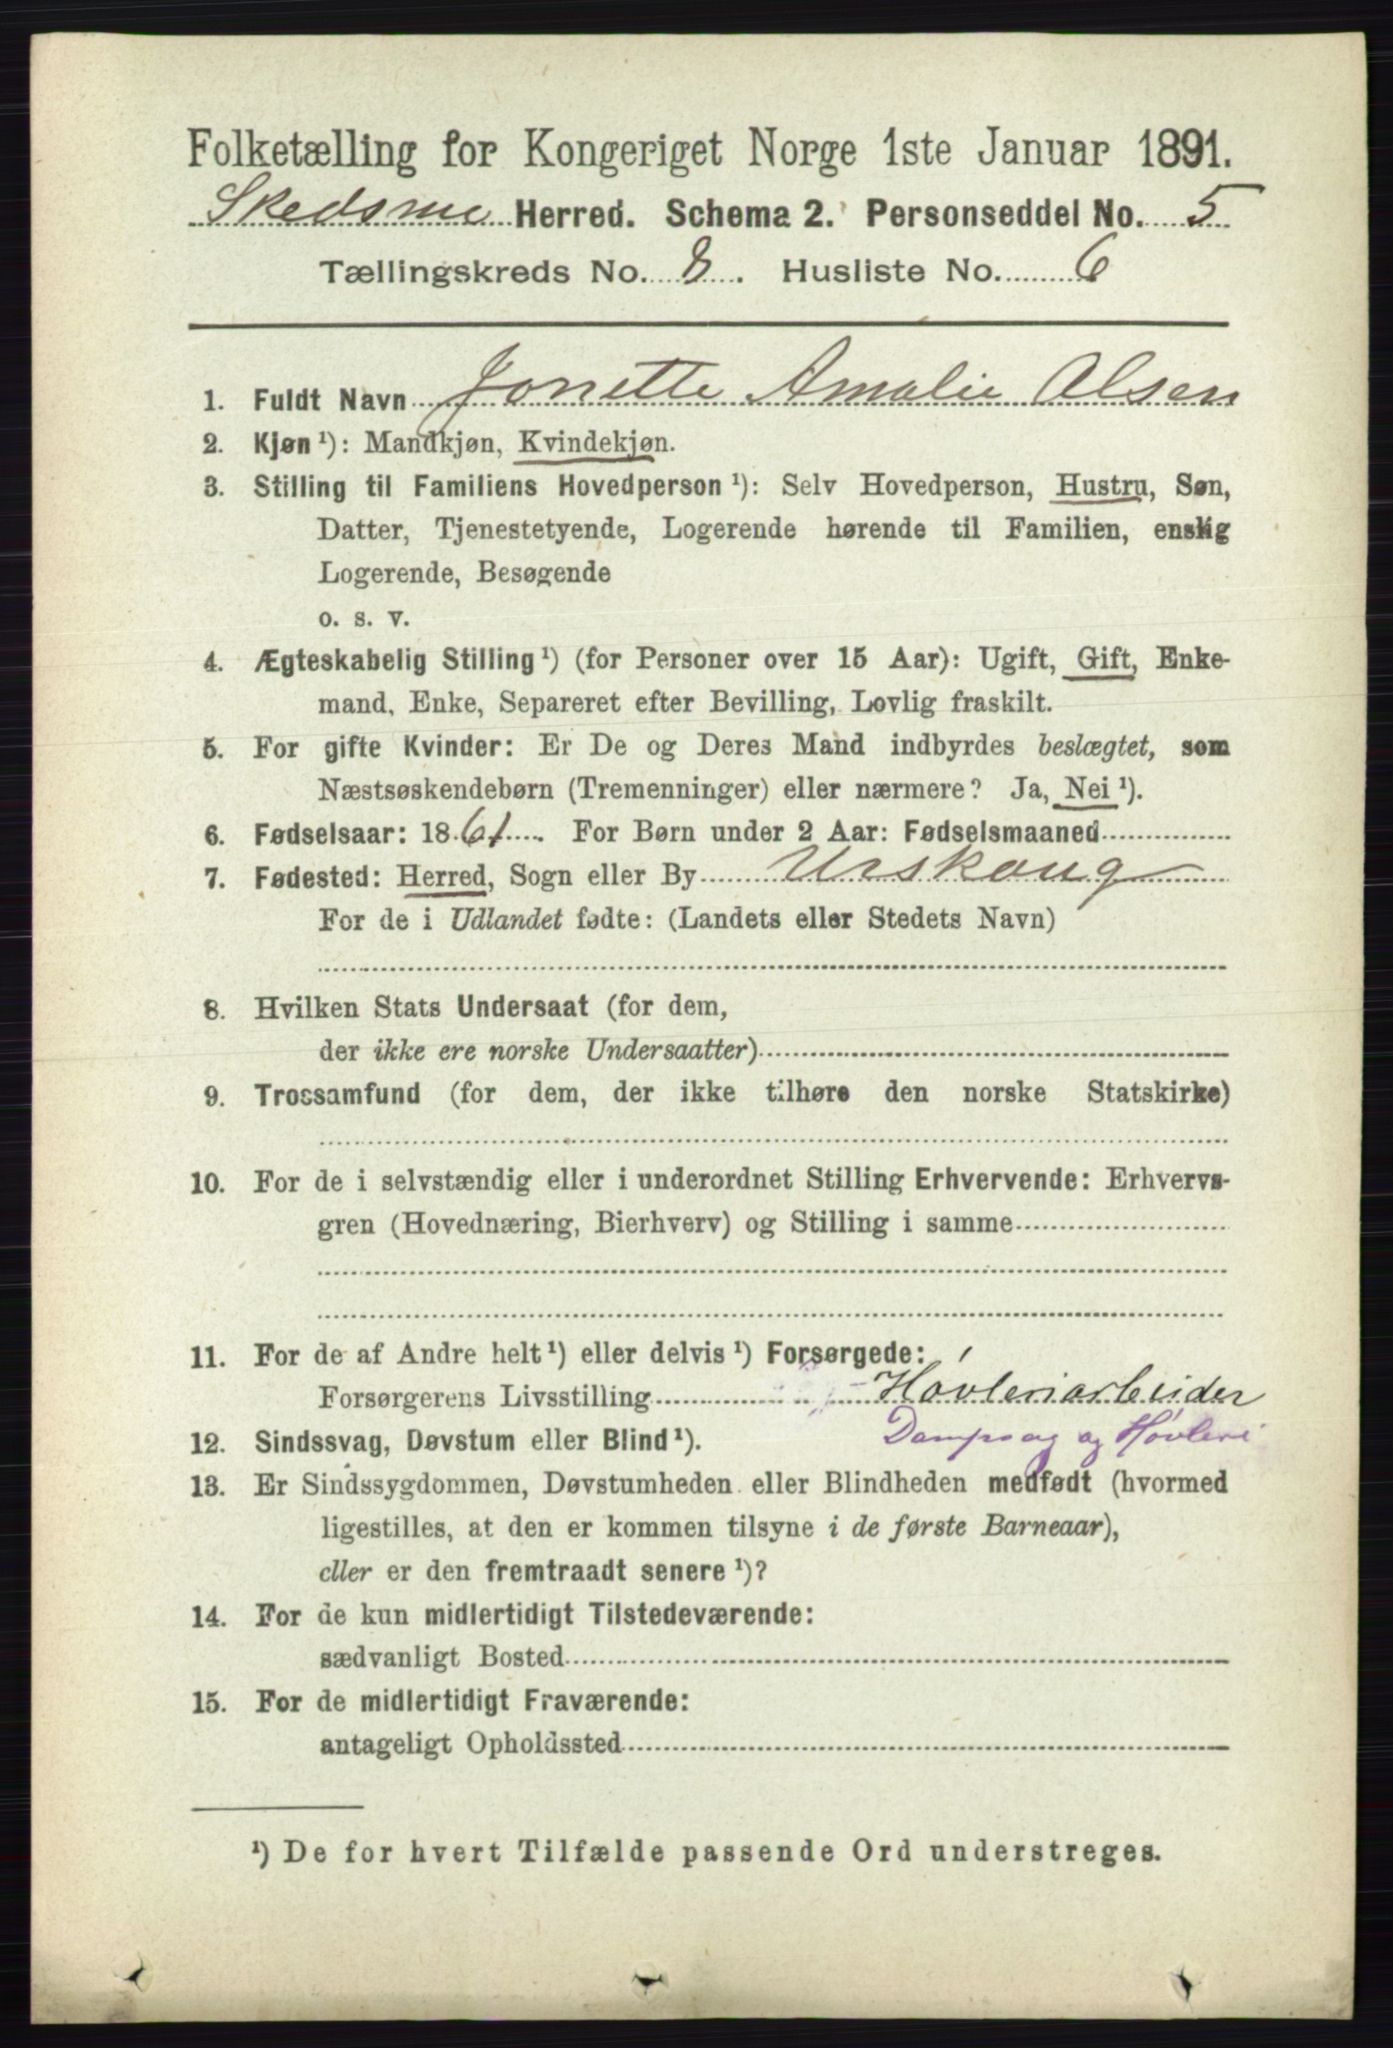 Folketælling for Kongeriget Norge 1ste Januar 1891.
Skedsmo Herred. Schema 2. Personseddel No. 5
Tællingskreds No. 8. Husliste No. 6
1. Fuldt Navn Jonette Amalie Olsen
2. Kjøn ¹): Mandkjøn, Kvindekjøn.
3. Stilling til Familiens Hovedperson ¹): Selv Hovedperson, Hustru, Søn,
Datter, Tjenestetyende, Logerende hørende til Familien, enslig
Logerende, Besøgende
o. s. v.
4. Ægteskabelig Stilling ¹) (for Personer over 15 Aar): Ugift, Gift, Enke-
mand, Enke, Separeret efter Bevilling, Lovlig fraskilt.
5. For gifte Kvinder: Er De og Deres Mand indbyrdes beslægtet, som
Næstsøskendebørn (Tremenninger) eller nærmere? Ja, Nei ¹).
6. Fødselsaar: 1861. For Børn under 2 Aar: Fødselsmaaned
7. Fødested: Herred, Sogn eller By Urskoug
For de i Udlandet fødte: (Landets eller Stedets Navn)
8. Hvilken Stats Undersaat (for dem,
der ikke ere norske Undersaatter)
9. Trossamfund (for dem, der ikke tilhøre den norske Statskirke)
10. For de i selvstændig eller i underordnet Stilling Erhvervende: Erhvervs-
gren (Hovednæring, Bierhverv) og Stilling i samme
11. For de af Andre helt ¹) eller delvis ¹) Forsørgede:
Forsørgerens Livsstilling Høvleriarbeider
12. Sindssvag, Døvstum eller Blind ¹). Dampsag og Høvleri
13. Er Sindssygdommen, Døvstumheden eller Blindheden medfødt (hvormed
ligestilles, at den er kommen tilsyne i de første Barneaar),
eller er den fremtraadt senere ¹)?
14. For de kun midlertidigt Tilstedeværende:
sædvanligt Bosted
15. For de midlertidigt Fraværende:
antageligt Opholdssted
¹) De for hvert Tilfælde passende Ord understreges.